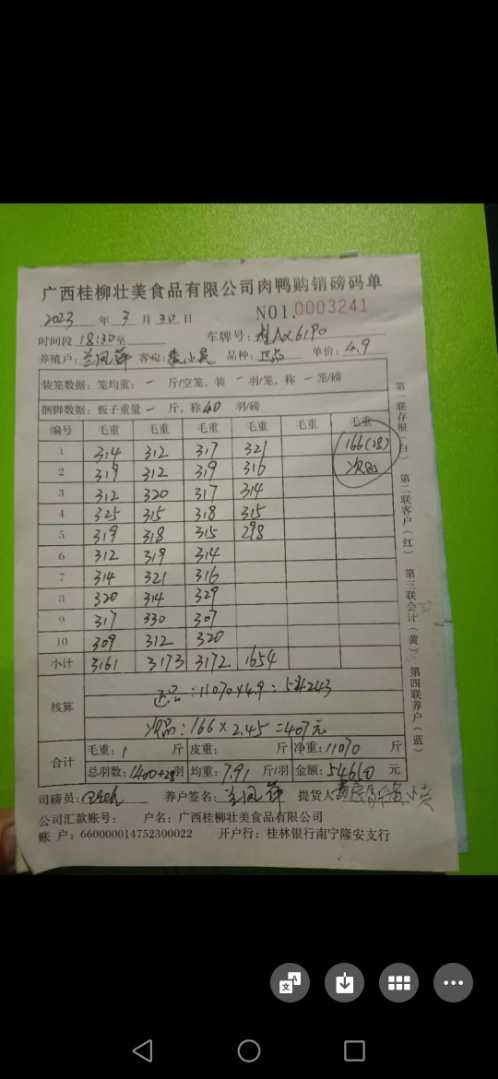 广西桂柳壮美食品有限公司肉鸭购销磅码单
2023 年 3 月 30 日 NO1.0003241
时间段 18:30至 车牌号: 桂AX6190
养殖户: 兰凤萍 客户: 品种: 正品 单价: 4.9
装笼数据: 笼均重: - 斤/空笼, 装 - 羽/笼, 称 - 笼/磅
捆脚数据: 板子重量 - 斤, 称 40 羽/磅
编号 毛重 毛重 毛重 毛重 毛重 毛重
1 314 312 317 321 166(28)
2 319 312 319 316 次品
3 312 320 317 314
4 325 315 318 315
5 319 318 315 298
6 312 319 314
7 314 321 316
8 320 314 329
9 317 330 307
10 309 312 320
小计 3161 3173 3172 1654
核算 正品:11070×4.9=54243
次品:166×2.45=407元
合计 毛重: 斤 皮重: 斤 净重: 11070 斤
总羽数: 1400+28羽 均重: 7.91 斤/羽 金额: 54650 元
司磅员: 养户签名: 兰凤萍 提货人
公司汇款账号: 户名: 广西桂柳壮美食品有限公司
账户: 660000014752300022 开户行: 桂林银行南宁隆安支行
第一联存根(白) 第二联客户(红) 第三联会计(黄) 第四联养户(蓝)